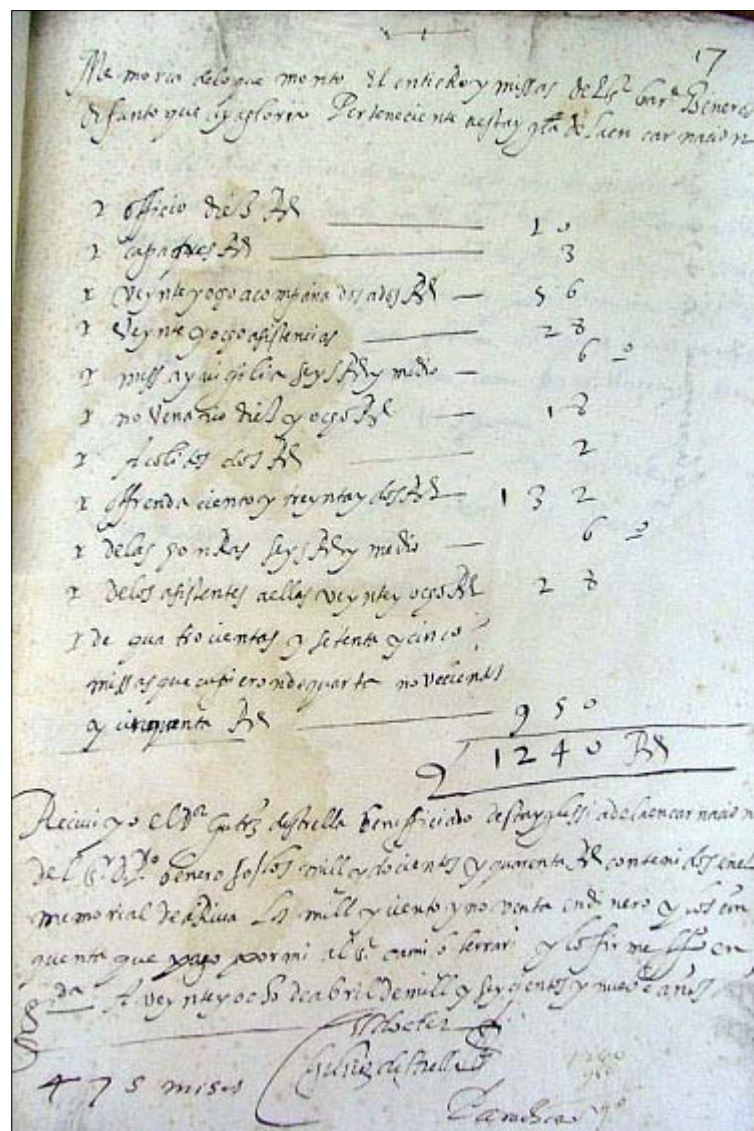 17
Memoria de lo que monto el entierro y missas de
difunto que aya gloria Perteneciente a esta ygla de la encarnacion
officio diez Rs 10
capa tres Rs 3
veynte y ogo acompañados a dos Rs 56
Veynte y ogo asistencias 28
missa y vigilia seys Rs y medio 6 o
novenario diez y ogo Rs 18
Acolitos dos Rs 2
offrenda ciento y treynta y dos Rs 132
de las honRas seys Rs y medio 6 o
de los asistentes a ellas veynte y ogo Rs 28
de quatrocientas y setenta y cinco
missas que cupieron de quarta novecientos
y cinquenta Rs 950
1240 Rs
Recivi yo el Dor Gutrz destrella beneficiado desta yglessia de la encarnacion
del Sr los mill y docientos y quarenta Rs contenidos en el
memorial de aRiva Los mill y ciento y noventa en dinero y los cin
quenta que pago por mi al Sr y lo firme en
A veynte y ocho de abril de mill y seyscientos y nueve años
El doctor
Gutrz destrella
475 misas